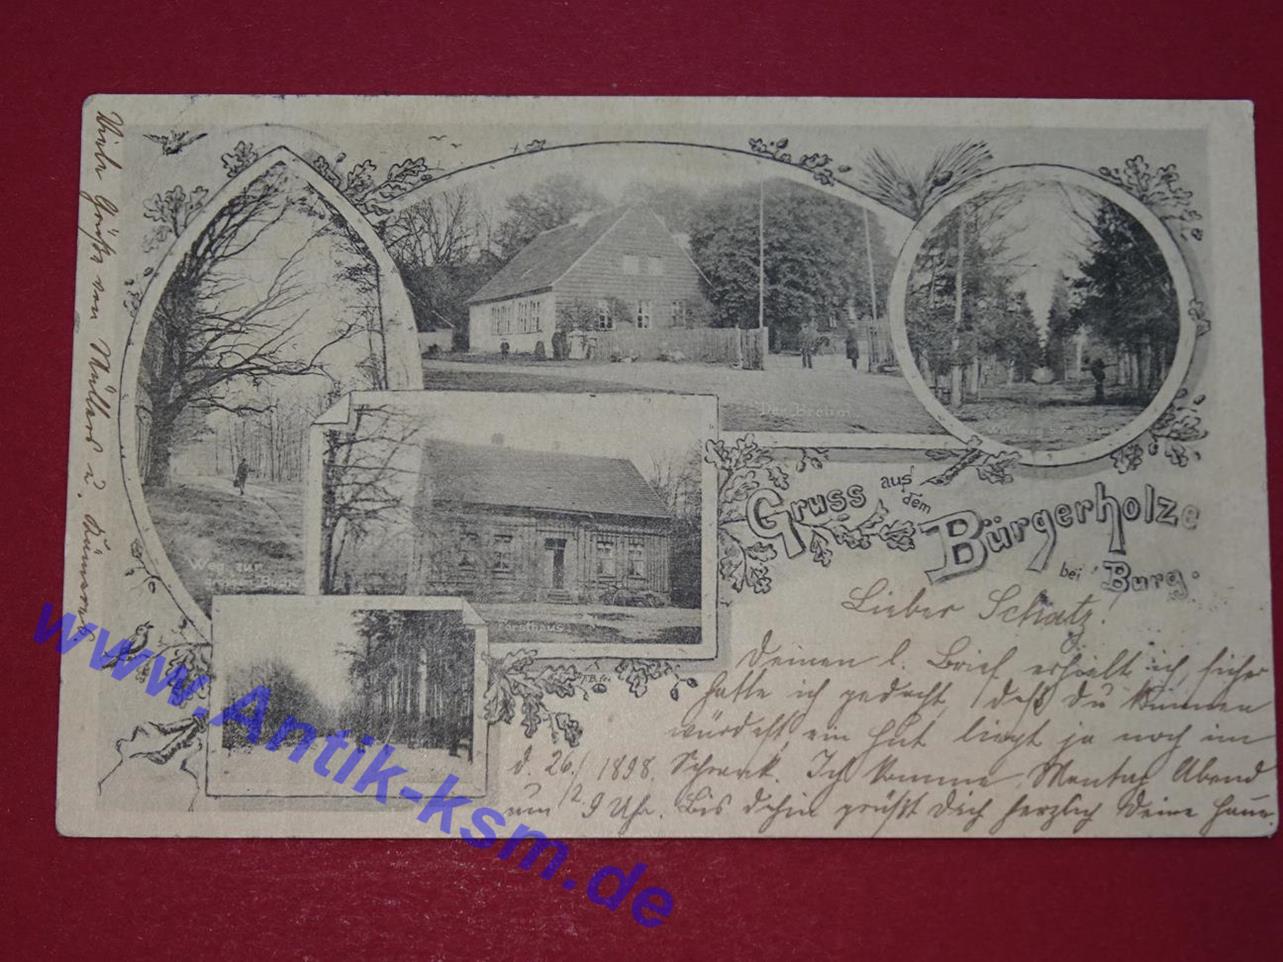 Viele Grüße von
Der Brehm
Weg zur
grossen Buche
Forsthaus
F.B.
Gruss aus dem
Bürgerholze
bei Burg.
Lieber Schatz.
Deinen l. Brief erhielt ich, sicher
hatte ich gedacht, daß Du kommen
würdest, ein Hut liegt ja noch im
d. 26./ 1898. Schrank. Ich komme Montag Abend
um 1/2 9 Uhr. Bis dahin grüßt Dich herzlich Deine
www.Antik-ksm.de